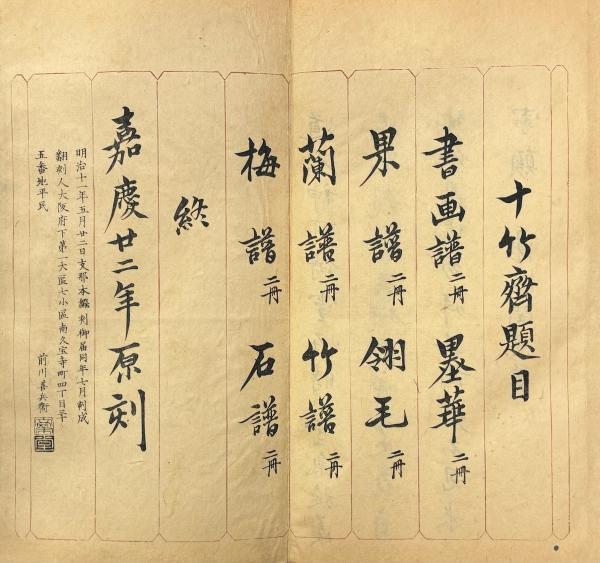 十竹齋題目
書画譜二冊 墨華二冊
果譜二冊 翎毛二冊
蘭譜二冊 竹譜二冊
梅譜二冊 石譜二冊
終
嘉慶廿二年原刻
明治十一年五月廿二日支那本飜刻御届同年七月刻成
翻刻人大阪府下第一大區七小區南久宝寺町四丁目
五番地平民
前川善兵衛